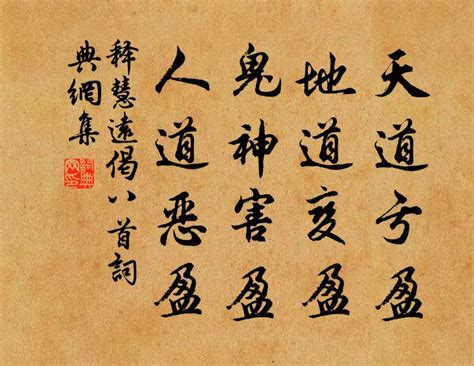 天道亏盈
地道变盈
鬼神害盈
人道恶盈
释慧遠偈八首詞
典網集